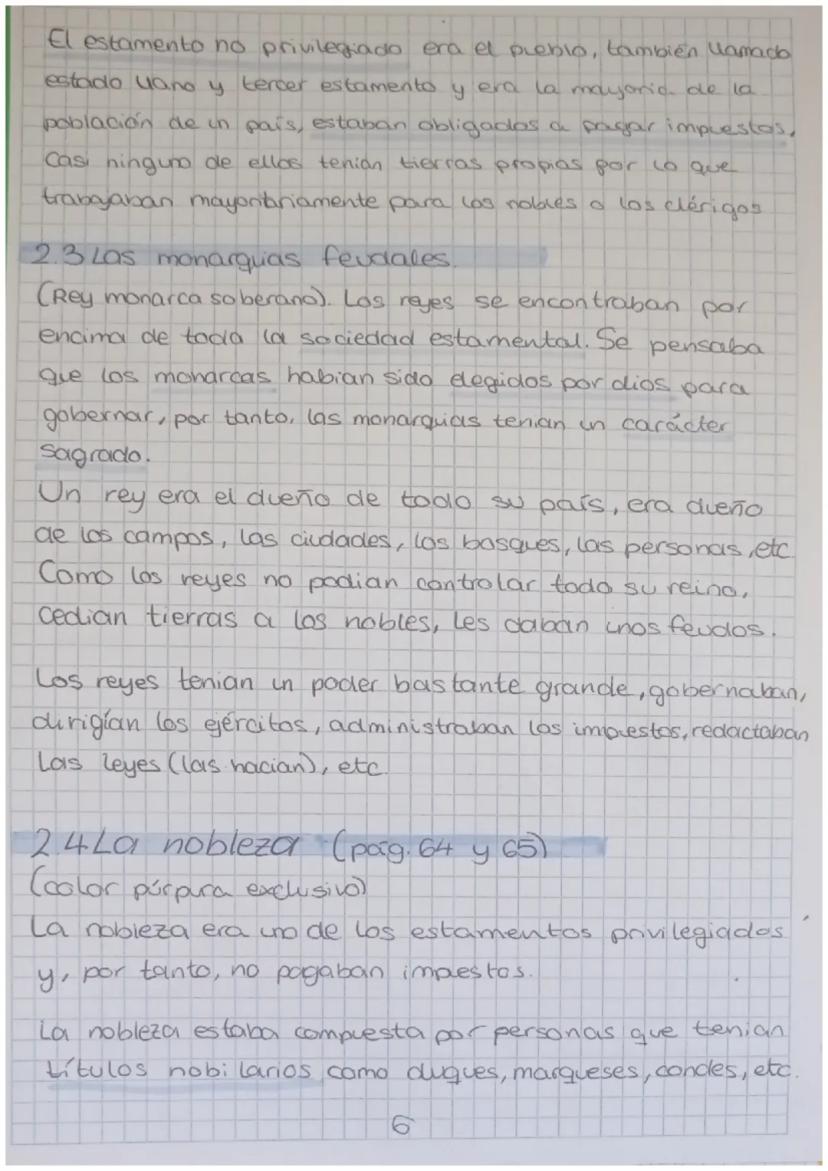 El estamento no privilegiado era el pueblo, también llamado
estado llano y tercer estamento y era la mayoría de la
población de un país, estaban obligados a pagar impuestos,
casi ninguno de ellos tenían tierras propias por lo que
trabajaban mayoritriamente para los nobles o los clérigos
2.3 Las monarquias feudales.
(Rey monarca soberano). Los reyes se encontraban por
encima de toda la sociedad estamental. Se pensaba
que los monarcas habian sido elegidos por dios para
gobernar, por tanto, las monarquias tenian un carácter
sagrado.
Un rey era el dueño de todo su país, era dueño
de los campos, las ciudades, los bosques, las personas, etc
Como los reyes no podian controlar todo su reino,
cedian tierras a los nobles, les daban unos feudos.
Los reyes tenian un poder bastante grande, gobernaban,
dirigían los ejércitos, administraban los impuestos, redactaban
las leyes (las hacian), etc.
2.4 La nobleza (pág. 64 y 65)
(color púrpura exclusivo)
La nobleza era uno de los estamentos privilegiados
y, por tanto, no pagaban impuestos.
La nobleza estaba compuesta por personas que tenian
títulos nobilarios como duques, marqueses, condes, etc.
6